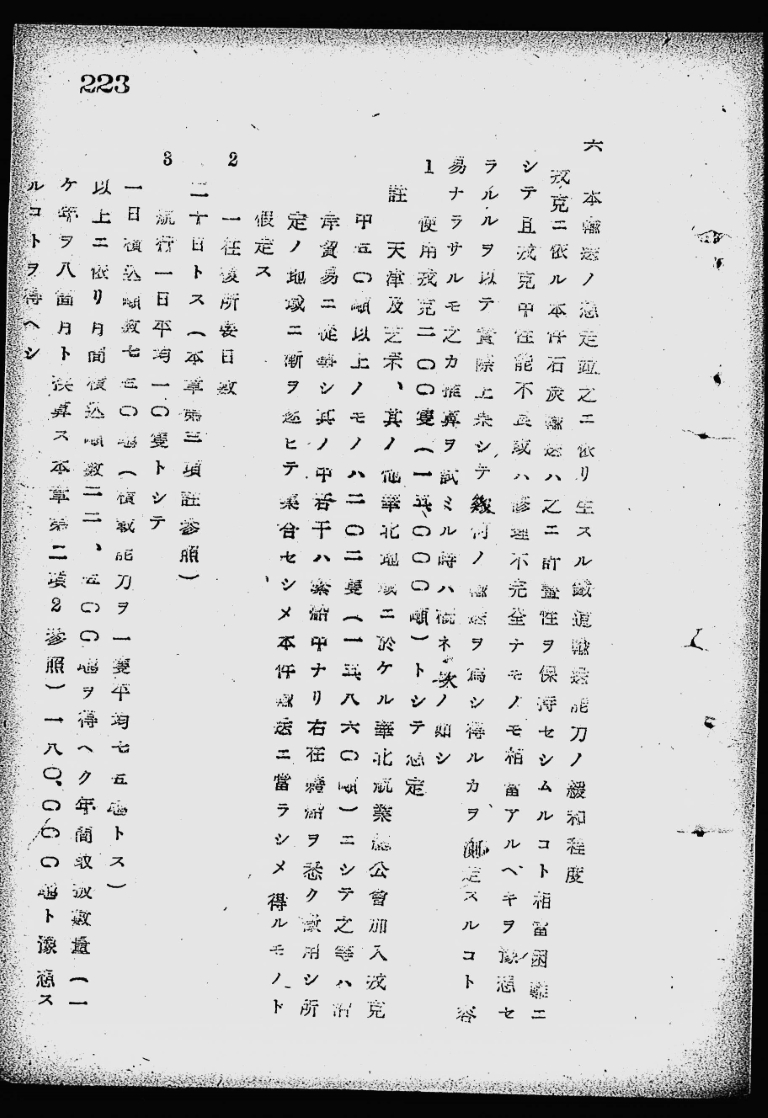 223
六　本輸送ノ想定並之ニ依リ生スル鐵道輸送能力ノ緩和程度
戎克ニ依ル本件石炭輸送ハ之ニ計畫性ヲ保持セシムルコト相當困難ニ
シテ且戎克中性能不良或ハ修理不完全ナモノモ相當アルヘキヲ豫想セ
ラルルヲ以テ實際上果シテ幾何ノ輸送ヲ爲シ得ルカヲ測定スルコト容
易ナラサルモ之カ推算ヲ試ミル時ハ概ネ次ノ如シ
1　使用戎克二〇〇隻（一五、〇〇〇噸）トシテ想定
註　天津及芝罘、其ノ他華北地域ニ於ケル華北航業總公會加入戎克
中五〇噸以上ノモノハ二〇二隻（一五八六〇噸）ニシテ之等ハ沿
岸貿易ニ從事シ其ノ中若干ハ繋船中ナリ右在籍船ヲ悉ク徴用シ所
定ノ地域ニ漸ヲ逐ヒテ集合セシメ本件輸送ニ當ラシメ得ルモノト
假定ス
2　一往復所要日數
二十日トス（本章第三項註參照）
3　航行一日平均一〇隻トシテ
一日積込噸數七五〇噸（積載能力ヲ一隻平均七五噸トス）
以上ニ依リ月間積込噸數二二、五〇〇噸ヲ得ヘク年間取扱數量（一
ケ年ヲ八箇月ト換算ス本章第二項2參照）一八〇、〇〇〇噸ト豫想ス
ルコトヲ得ヘシ